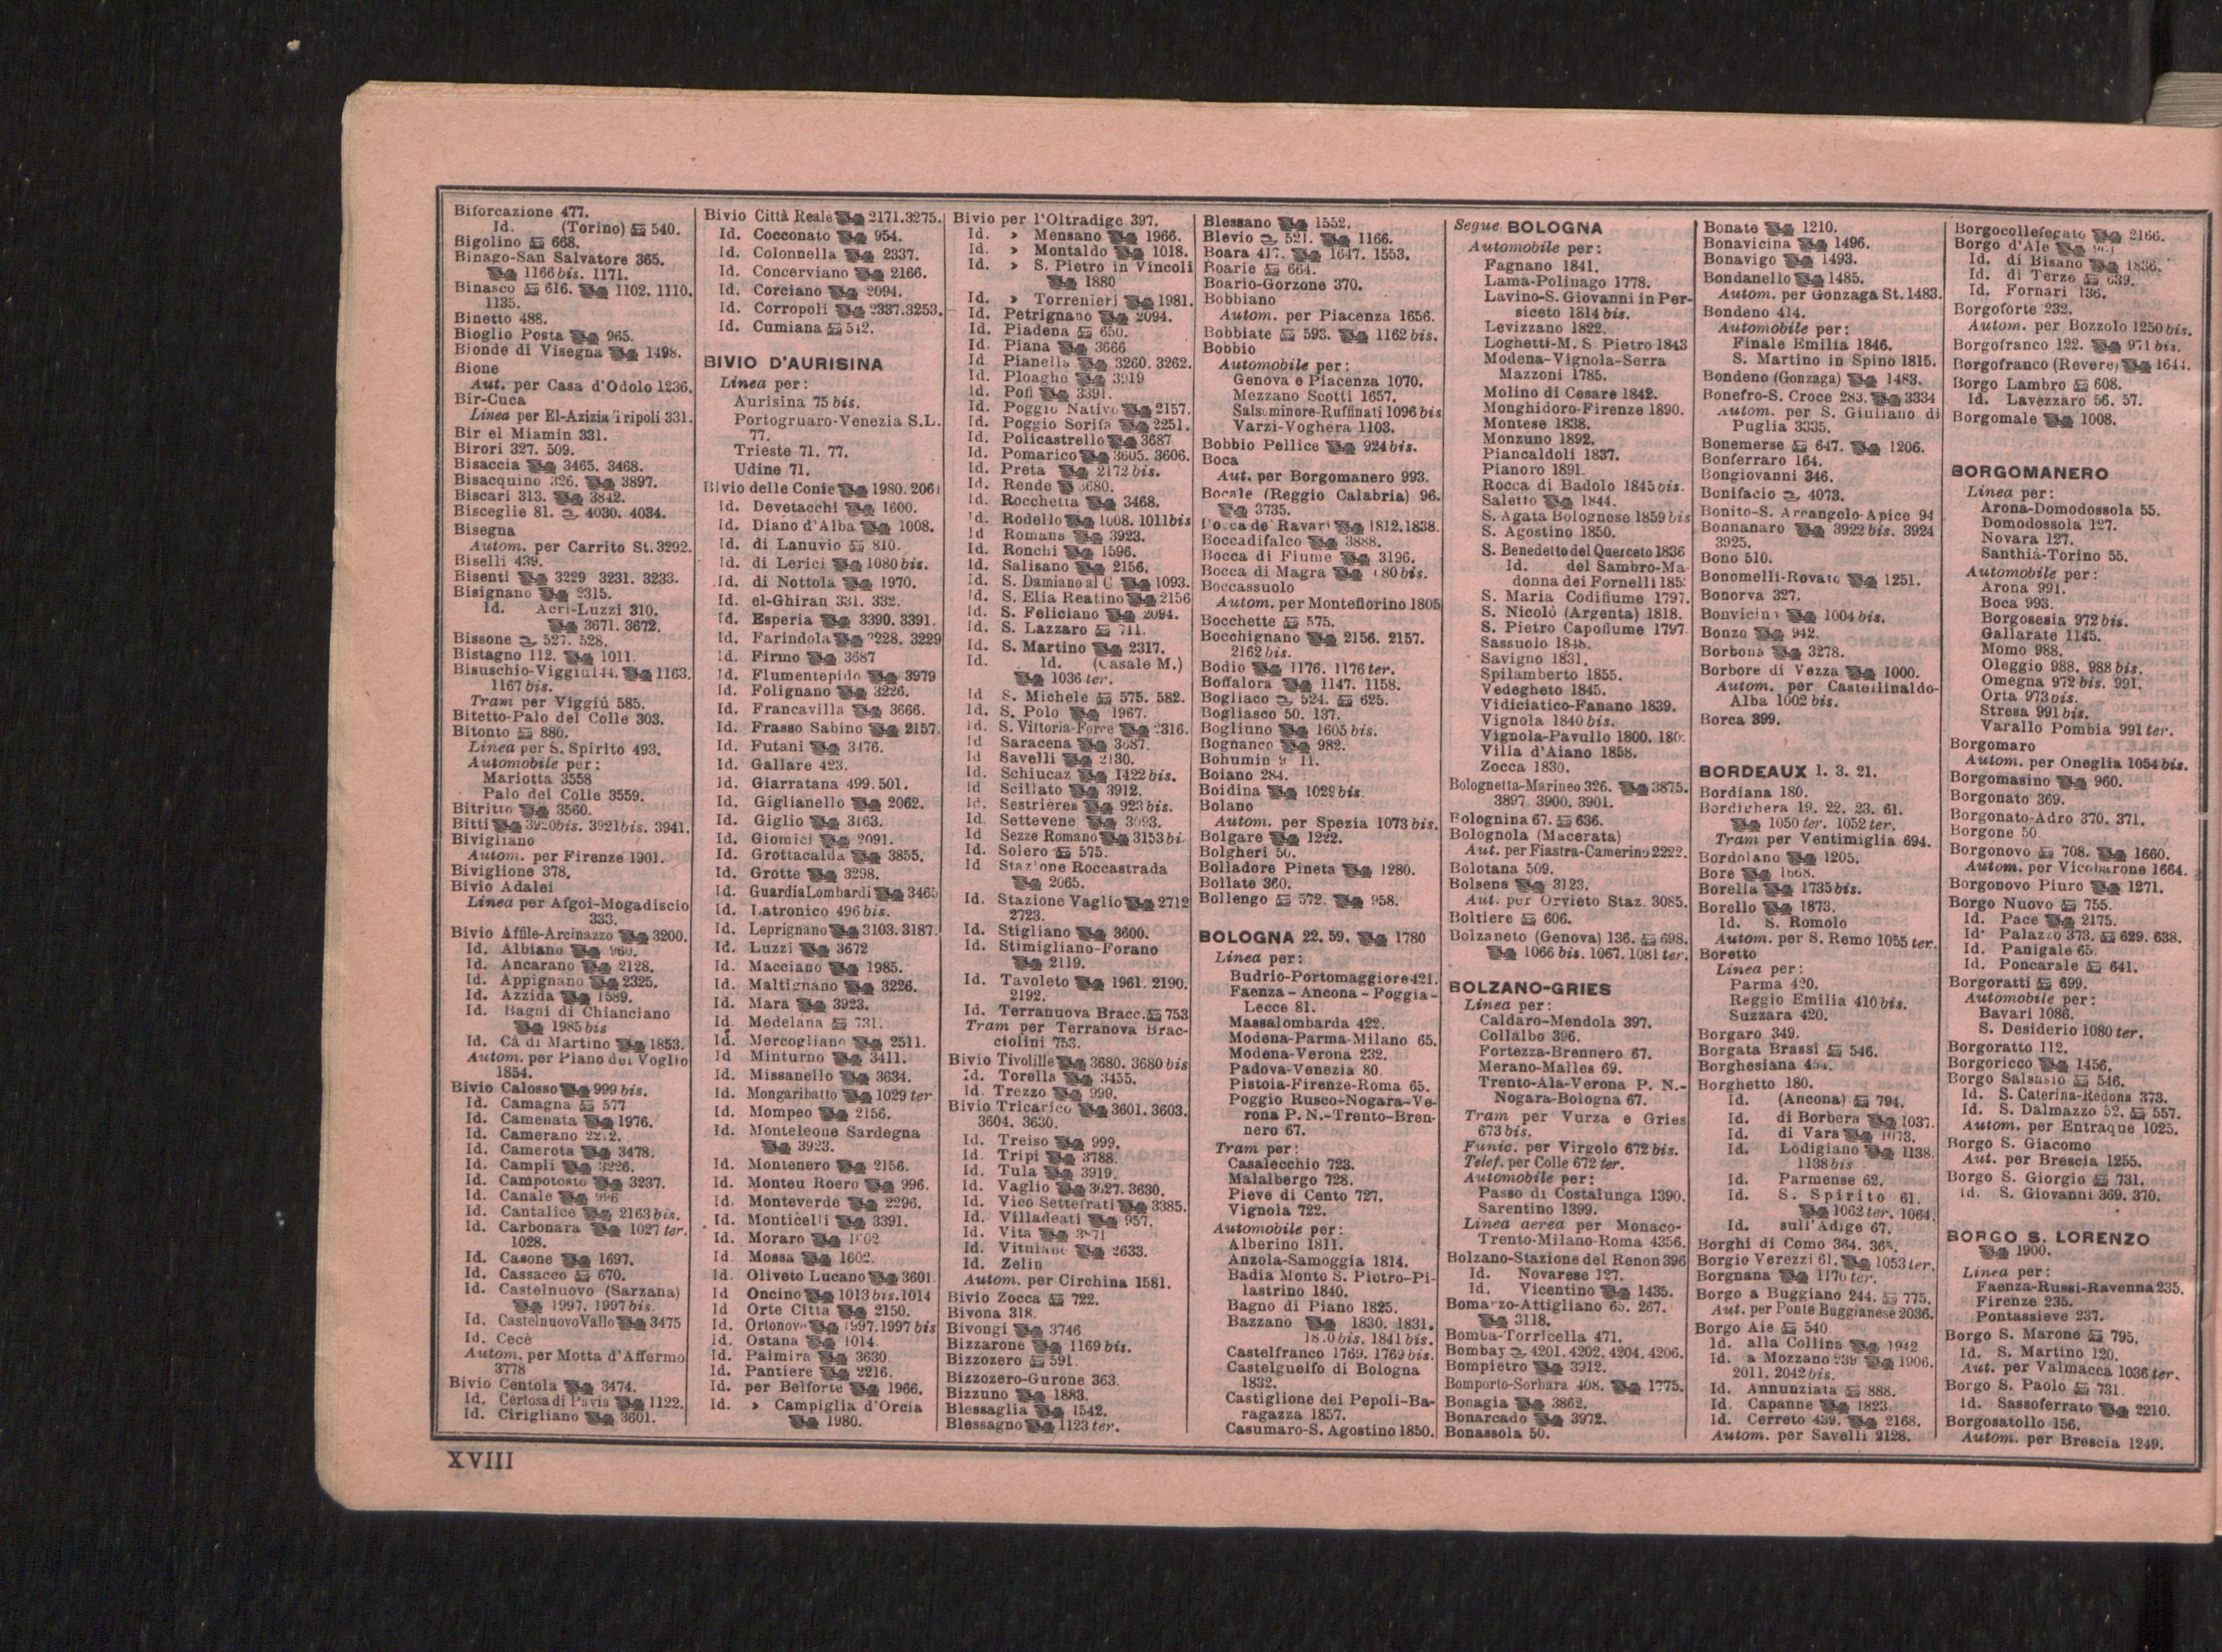 Biforcazione 477.
Id. (Torino) 540.
Bigolino 668.
Binago-San Salvatore 365.
1166 bis. 1171.
Binasco 616. 1102. 1110.
1135.
Binetto 488.
Bioglio Posta 965.
Bionde di Visegna 1498.
Bione
Aut. per Casa d'Odolo 1236.
Bir-Cuca
Linea per El-Azizia Tripoli 331.
Bir el Miamin 331.
Birori 327. 509.
Bisaccia 3465. 3468.
Bisacquino 326. 3897.
Biscari 313. 3842.
Bisceglie 81. 4030. 4034.
Bisegna
Autom. per Carrito St. 3292.
Biselli 439.
Bisenti 3229 3231. 3233.
Bisignano 2315.
Id. Acri-Luzzi 310.
3671. 3672.
Bissone 527. 528.
Bistagno 112. 1011.
Bisuschio-Viggiù 1163.
1167 bis.
Tram per Viggiù 585.
Bitetto-Palo del Colle 303.
Bitonto 880.
Linea per S. Spirito 493.
Automobile per:
Mariotta 3558
Palo del Colle 3559.
Bitritto 3560.
Bitti 3920bis. 3921bis. 3941.
Bivigliano
Autom. per Firenze 1901.
Biviglione 378.
Bivio Adalei
Linea per Afgoi-Mogadiscio
333.
Bivio Affile-Arcinazzo 3200.
Id. Albiano 960.
Id. Ancarano 2128.
Id. Appignano 2325.
Id. Azzida 1589.
Id. Bagni di Chianciano
1985 bis
Id. Cà di Martino 1853.
Autom. per Piano del Voglio
1854.
Bivio Calosso 999 bis.
Id. Camagna 577
Id. Camenata 1976.
Id. Camerano 2212.
Id. Camerota 3478.
Id. Campli 3226.
Id. Campotosto 3237.
Id. Canale 996
Id. Cantalice 2163 bis.
Id. Carbonara 1027 ter.
1028.
Id. Casone 1697.
Id. Cassacco 670.
Id. Castelnuovo (Sarzana)
1997. 1997 bis.
Id. Castelnuovo Vallo 3475
Id. Cecè
Autom. per Motta d'Affermo
3778
Bivio Centola 3474.
Id. Certosa di Pavia 1122.
Id. Cirigliano 3601.
Bivio Città Reale 2171. 3275.
Id. Cocconato 954.
Id. Colonnella 2337.
Id. Concerviano 2166.
Id. Corciano 2094.
Id. Corropoli 2337. 3253.
Id. Cumiana 542.
BIVIO D'AURISINA
Linea per:
Aurisina 75 bis.
Portogruaro-Venezia S.L.
77.
Trieste 71. 77.
Udine 71.
Bivio delle Conie 1980. 2061
Id. Devetacchi 1600.
Id. Diano d'Alba 1008.
Id. di Lanuvio 810.
Id. di Lerici 1080 bis.
Id. di Nottola 1970.
Id. el-Ghiran 331. 332.
Id. Esperia 3390. 3391.
Id. Farindola 3228. 3229
Id. Firmo 3687
Id. Flumentepido 3979
Id. Folignano 3226.
Id. Francavilla 3666.
Id. Frasso Sabino 2157
Id. Futani 3476.
Id. Gallare 423.
Id. Giarratana 499. 501.
Id. Giglianello 2062.
Id. Giglio 3163.
Id. Giomici 2091.
Id. Grottacalda 3855.
Id. Grotte 3298.
Id. Guardia Lombardi 3465
Id. Latronico 496 bis.
Id. Leprignano 3103. 3187.
Id. Luzzi 3672
Id. Macciano 1985.
Id. Maltignano 3226.
Id. Mara 3923.
Id. Medelana 731.
Id. Mercogliano 2511.
Id. Minturno 3411.
Id. Missanello 3634.
Id. Mongaribatto 1029 ter
Id. Mompeo 2156.
Id. Monteleone Sardegna
3923.
Id. Montenero 2156.
Id. Monteu Roero 996.
Id. Monteverde 2296.
Id. Monticelli 3391.
Id. Moraro 1602
Id. Mossa 1602.
Id. Oliveto Lucano 3601
Id. Oncino 1013 bis. 1014
Id. Orte Città 2150.
Id. Ortonovo 1997. 1997 bis
Id. Ostana 1014.
Id. Palmira 3630
Id. Pantiere 2216.
Id. per Belforte 1966.
Id. » Campiglia d'Orcia
1980.
Bivio per l'Oltradige 397.
Id. » Mensano 1966.
Id. » Montaldo 1018.
Id. » S. Pietro in Vincoli
1880
Id. » Torrenieri 1981.
Id. Petrignano 2094.
Id. Piadena 650.
Id. Piana 3666
Id. Pianella 3260. 3262.
Id. Ploaghe 3919
Id. Pofi 3391.
Id. Poggio Nativo 2157.
Id. Poggio Sorifa 2251.
Id. Policastrello 3687
Id. Pomarico 3605. 3606.
Id. Preta 2172 bis.
Id. Rende 3680.
Id. Rocchetta 3468.
Id. Rodello 1008. 1011bis
Id. Romana 3923.
Id. Ronchi 1596.
Id. Salisano 2156.
Id. S. Damiano al C 1093.
Id. S. Elia Reatino 2156
Id. S. Feliciano 2094.
Id. S. Lazzaro 711.
Id. S. Martino 2317.
Id. Id. (Casale M.)
1036 ter.
Id. S. Michele 575. 582.
Id. S. Polo 1967.
Id. S. Vittoria-Force 2316.
Id. Saracena 3687.
Id. Savelli 2130.
Id. Schiucaz 1422 bis.
Id. Scillato 3912.
Id. Sestrières 923 bis.
Id. Settevene 3093.
Id. Sezze Romano 3153 bi
Id. Solero 575.
Id. Stazione Roccastrada
2065.
Id. Stazione Vaglio 2712
2723.
Id. Stigliano 3600.
Id. Stimigliano-Forano
2119.
Id. Tavoleto 1961. 2190.
2192.
Id. Terranuova Bracc. 753
Tram per Terranova Brac-
ciolini 753.
Bivio Tivolille 3680. 3680 bis
Id. Torella 3455.
Id. Trezzo 999.
Bivio Tricarico 3601. 3603.
3604. 3630.
Id. Treiso 999.
Id. Tripi 3788.
Id. Tula 3919.
Id. Vaglio 3627. 3630.
Id. Vico Settefrati 3385.
Id. Villadeati 957.
Id. Vita 3871
Id. Vitulano 2633.
Id. Zelin
Autom. per Circhina 1581.
Bivio Zocca 722.
Bivona 318.
Bivongi 3746
Bizzarone 1169 bis.
Bizzozero 591.
Bizzozero-Gurone 363.
Bizzuno 1883.
Blessaglia 1542.
Blessagno 1123 ter.
Blessano 1552.
Blevio 521. 1166.
Boara 417. 1647. 1553.
Boarie 664.
Boario-Gorzone 370.
Bobbiano
Autom. per Piacenza 1656.
Bobbiate 593. 1162 bis.
Bobbio
Automobile per:
Genova e Piacenza 1070.
Mezzano Scotti 1657.
Salsominore-Ruffinati 1096 bis
Varzi-Voghera 1103.
Bobbio Pellice 924 bis.
Boca
Aut. per Borgomanero 993.
Bocale (Reggio Calabria) 96.
3735.
Bocca de' Ravari 1812. 1838.
Boccadifalco 3888.
Bocca di Fiume 3196.
Bocca di Magra 1080 bis.
Boccassuolo
Autom. per Montefiorino 1805
Bocchette 575.
Bocchignano 2156. 2157.
2162 bis.
Bodio 1176. 1176 ter.
Boffalora 1147. 1158.
Bogliaco 524. 625.
Bogliasco 50. 137.
Bogliuno 1605 bis.
Bognanco 982.
Bohumin
Boiano 284.
Boidina 1029 bis.
Bolano
Autom. per Spezia 1073 bis.
Bolgare 1222.
Bolgheri 50.
Bolladore Pineta 1280.
Bollate 360.
Bollengo 572. 958.
BOLOGNA 22. 59. 1780
Linea per:
Budrio-Portomaggiore 421.
Faenza - Ancona - Foggia -
Lecce 81.
Massalombarda 422.
Modena-Parma-Milano 65.
Modena-Verona 232.
Padova-Venezia 80
Pistoia-Firenze-Roma 65.
Poggio Rusco-Nogara-Ve-
rona P. N.-Trento-Bren-
nero 67.
Tram per:
Casalecchio 723.
Malalbergo 728.
Pieve di Cento 727.
Vignola 722.
Automobile per:
Alberino 1811.
Anzola-Samoggia 1814.
Badia Monte S. Pietro-Pi-
lastrino 1840.
Bagno di Piano 1825.
Bazzano 1830. 1831.
1840 bis. 1841 bis.
Castelfranco 1769. 1769 bis.
Castelguelfo di Bologna
1832.
Castiglione dei Pepoli-Ba-
ragazza 1857.
Casumaro-S. Agostino 1850.
Segue BOLOGNA
Automobile per:
Fagnano 1841.
Lama-Polinago 1778.
Lavino-S. Giovanni in Per-
siceto 1814 bis.
Levizzano 1822.
Loghetti-M. S Pietro 1843
Modena-Vignola-Serra
Mazzoni 1785.
Molino di Cesare 1842.
Monghidoro-Firenze 1890.
Montese 1838.
Monzuno 1892.
Piancaldoli 1837.
Pianoro 1891.
Rocca di Badolo 1845 bis.
Saletto 1844.
S. Agata Bolognese 1859 bis
S. Agostino 1850.
S. Benedetto del Querceto 1836
Id. del Sambro-Ma-
donna dei Fornelli 185
S. Maria Codifiume 1797.
S. Nicolò (Argenta) 1818.
S. Pietro Capofiume 1797
Sassuolo 1848.
Savigno 1831.
Spilamberto 1855.
Vedegheto 1845.
Vidiciatico-Fanano 1839.
Vignola 1840 bis.
Vignola-Pavullo 1800. 180
Villa d'Aiano 1858.
Zocca 1830.
Bolognetta-Marineo 326. 3875.
3897. 3900. 3901.
Bolognina 67. 636.
Bolognola (Macerata)
Aut. per Fiastra-Camerino 2222.
Bolotana 509.
Bolsena 3123.
Aut. per Orvieto Staz. 3085.
Boltiere 606.
Bolzaneto (Genova) 136. 698.
1066 bis. 1067. 1081 ter.
BOLZANO-GRIES
Linea per:
Caldaro-Mendola 397.
Collalbo 396.
Fortezza-Brennero 67.
Merano-Malles 69.
Trento-Ala-Verona P. N.-
Nogara-Bologna 67.
Tram per Vurza e Gries
673 bis.
Funic. per Virgolo 672 bis.
Telef. per Colle 672 ter.
Automobile per:
Passo di Costalunga 1390.
Sarentino 1399.
Linea aerea per Monaco-
Trento-Milano-Roma 4356.
Bolzano-Stazione del Renon 396
Id. Novarese 127.
Id. Vicentino 1435.
Bomarzo-Attigliano 65. 267.
3118.
Bomba-Torricella 471.
Bombay 4201. 4202. 4204. 4206.
Bompietro 3912.
Bomporto-Sorbara 408. 1775.
Bonagia 3862.
Bonarcado 3972.
Bonassola 50.
Bonate 1210.
Bonavicina 1496.
Bonavigo 1493.
Bondanello 1485.
Autom. per Gonzaga St. 1483.
Bondeno 414.
Automobile per:
Finale Emilia 1846.
S. Martino in Spino 1815.
Bondeno (Gonzaga) 1483.
Bonefro-S. Croce 283. 3334
Autom. per S. Giuliano di
Puglia 3335.
Bonemerse 647. 1206.
Bonferraro 164.
Bongiovanni 346.
Bonifacio 4073.
Bonito-S. Arcangelo-Apice 94
Bonnanaro 3922 bis. 3924
3925.
Bono 510.
Bonomelli-Rovato 1251.
Bonorva 327.
Bonvicino 1004 bis.
Bonzo 942.
Borbona 3278.
Borbore di Vezza 1000.
Autom. per Castellinaldo-
Alba 1002 bis.
Borca 399.
BORDEAUX 1. 3. 21.
Bordiana 180.
Bordighera 19. 22. 23. 61.
1050 ter. 1052 ter.
Tram per Ventimiglia 694.
Bordolano 1205.
Bore 1668.
Borella 1735 bis.
Borello 1873.
Id. S. Romolo
Autom. per S. Remo 1055 ter.
Boretto
Linea per:
Parma 420.
Reggio Emilia 410 bis.
Suzzara 420.
Borgaro 349.
Borgata Brassi 546.
Borghesiana 454.
Borghetto 180.
Id. (Ancona) 794.
Id. di Borbera 1037.
Id. di Vara 1073.
Id. Lodigiano 1138.
1138 bis
Id. Parmense 62.
Id. S. Spirito 61.
1062 ter. 1064.
Id. sull'Adige 67.
Borghi di Como 364. 365.
Borgio Verezzi 61. 1053 ter.
Borgnana 1170 ter.
Borgo a Buggiano 244. 775.
Aut. per Ponte Buggianese 2036.
Borgo Aie 540
Id. alla Collina 1942
Id. a Mozzano 239 1906.
2011. 2042 bis.
Id. Annunziata 888.
Id. Capanne 1823.
Id. Cerreto 439. 2168.
Autom. per Savelli 2128.
Borgocollefegato 2166.
Borgo d'Ale
Id. di Bisano 1836.
Id. di Terzo 639.
Id. Fornari 136.
Borgoforte 232.
Autom. per Bozzolo 1250 bis.
Borgofranco 122. 971 bis.
Borgofranco (Revere) 1644.
Borgo Lambro 608.
Id. Lavezzaro 56. 57.
Borgomale 1008.
BORGOMANERO
Linea per:
Arona-Domodossola 55.
Domodossola 127.
Novara 127.
Santhià-Torino 55.
Automobile per:
Arona 991.
Boca 993.
Borgosesia 972 bis.
Gallarate 1145.
Momo 988.
Oleggio 988. 988 bis.
Omegna 972 bis. 991.
Orta 973 bis.
Stresa 991 bis.
Varallo Pombia 991 ter.
Borgomaro
Autom. per Oneglia 1054 bis.
Borgomasino 960.
Borgonato 369.
Borgonato-Adro 370. 371.
Borgone 50
Borgonovo 708. 1660.
Autom. per Vicobarone 1664.
Borgonovo Piuro 1271.
Borgo Nuovo 755.
Id. Pace 2175.
Id. Palazzo 373. 629. 638.
Id. Panigale 65.
Id. Poncarale 641.
Borgoratti 699.
Automobile per:
Bavari 1086.
S. Desiderio 1080 ter.
Borgoratto 112.
Borgoricco 1456.
Borgo Salsasio 546.
Id. S. Caterina-Redona 373.
Id. S. Dalmazzo 52. 557.
Autom. per Entraque 1025.
Borgo S. Giacomo
Aut. per Brescia 1255.
Borgo S. Giorgio 731.
Id. S. Giovanni 369. 370.
BORGO S. LORENZO
1900.
Linea per:
Faenza-Russi-Ravenna 235.
Firenze 235.
Pontassieve 237.
Borgo S. Marone 795.
Id. S. Martino 120.
Aut. per Valmacca 1036 ter.
Borgo S. Paolo 731.
Id. Sassoferrato 2210.
Borgosatollo 156.
Autom. per Brescia 1249.
XVIII